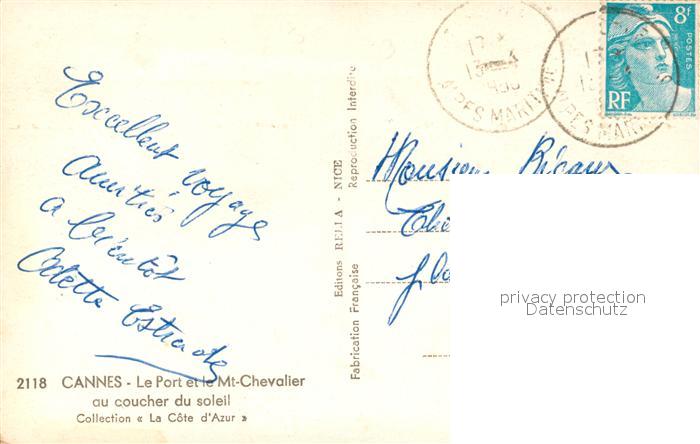 Excellent voyage
Amitiés
a bientôt
Odette
2118 CANNES - Le Port et le Mt-Chevalier
au coucher du soleil
Collection « La Côte d'Azur »
Editions RELIA - NICE
Fabrication Française Reproduction Interdite
17
13
ALPES MARITIMES
ALPES MARIT
8f
POSTES
RF
Monsieur
privacy protection
Datenschutz